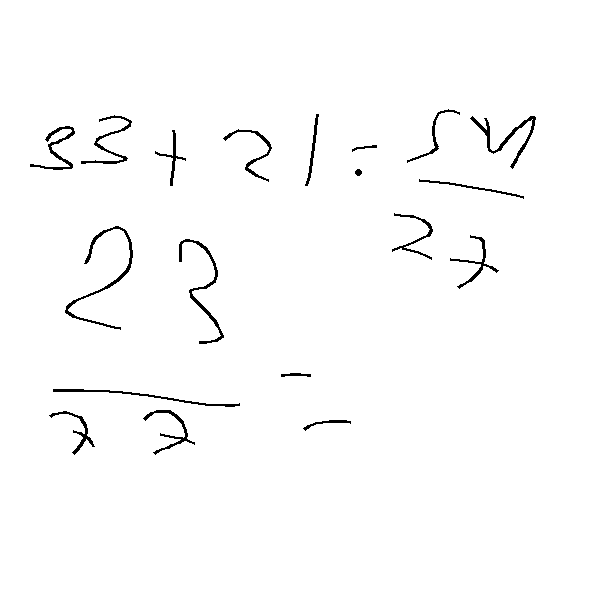 33 + 21 = 54
27
23
77 =